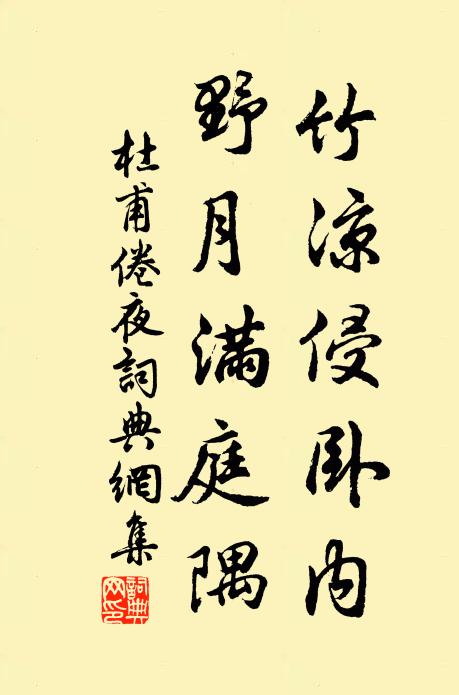 竹涼侵卧内
野月滿庭隅
杜甫倦夜詞典網集
詞典網印